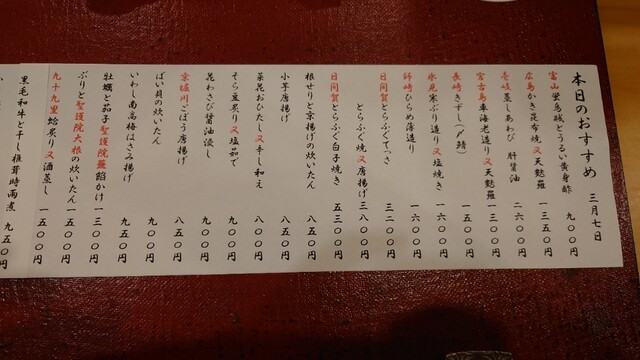 本日のおすすめ 三月七日
富山 蛍烏賊とうるい黄身酢 九〇〇円
広島かき昆布焼 又 天麩羅 一三五〇円
壱岐蒸しあわび 肝醤油 二六〇〇円
宮古島車海老造り 又 天麩羅 一三〇〇円
長崎きずし(〆鯖) 一五〇〇円
氷見寒ぶり造り 又 塩焼き 一六〇〇円
師崎ひらめ薄造り 一六〇〇円
日間賀とらふぐてっさ 三二〇〇円
とらふぐ焼 又 唐揚げ 三八〇〇円
日間賀とらふぐ白子焼き 五三〇〇円
根せりと京揚げの炊いたん 八五〇円
小芋唐揚げ 八五〇円
菜花おひたし 又 辛し和え 八〇〇円
そら豆炙り 又 塩茹で 九〇〇円
花わさび醤油浸し 九〇〇円
京堀川ごぼう唐揚げ 八五〇円
ばい貝の炊いたん 九〇〇円
いわし南高梅はさみ揚げ 九五〇円
牡蠣と茄子聖護院蕪餡かけ 一三〇〇円
ぶりと聖護院大根の炊いたん 一五〇〇円
九十九里蛤炙り 又 酒蒸し 一五〇〇円
黒毛和牛と干し椎茸時雨煮 九五〇円